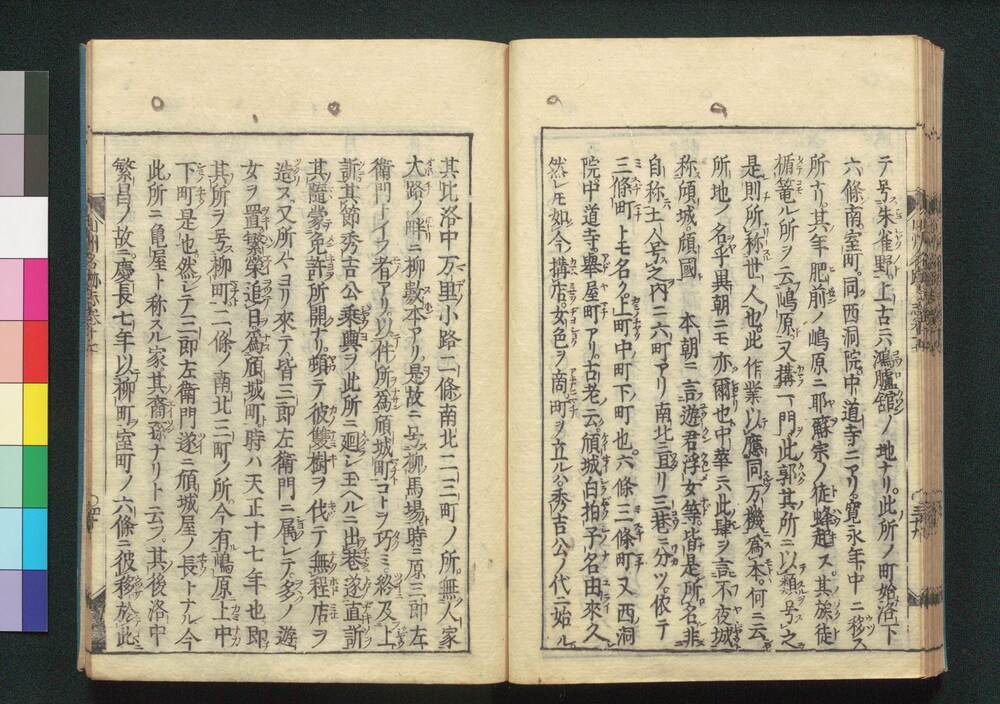 テ号朱雀野ト上古ニハ鴻臚舘ノ地ナリ此所ノ町始洛下
六條南室町同西洞院中道寺ニアリ寛永年中ニ移ス
所ナリ其年肥前ノ嶋原ニ耶蘇宗ノ徒蜂起ス其族徒
楯篭ル所ヲ云嶋原ト又搆一門此郭其所ニ以類号之
是則所称世人也此作業以應同万機為本何ニ云
所地ノ名乎異朝ニモ亦爾也中華ニハ此肆ヲ言不夜城
称傾城傾國ト本朝ニ言遊君浮女等皆是所名非
自称土人号之内ニ六町アリ南北三亘リ三巷ニ分ツ依テ
三條町トモ名ク上町中町下町也六條三條町又西洞
院中道寺舉屋町アリ古老云傾城白拍子名由來久
然レモ如今搆店女色ヲ商町ヲ立ル秀吉公ノ代ニ始ル
其比洛中万里小路二條南北二三町ノ所無人家
大路ノ畔ニ柳數本アリ是故ニ号柳馬場時ニ原三郎左
衛門トイフ者アリ以件所為傾城町コトヲ巧ミ終及上
訴其節秀吉公乗輿ヲ此所ニ廻シ玉ヘルニ出巷遂直訴
其隨蒙免許所開ナリ頓テ彼雙樹ヲ伐テ無程店ヲ
造ス又所々ヨリ來テ皆三郎左衛門ニ属シテ多ノ遊
女ヲ置繁榮追日為傾城町時ハ天正十七年也即
其所ヲ号ス柳町二條ノ南北三町ノ所今有嶋原上中
下町是也然シテ三郎左衛門遂ニ傾城屋ノ長トナル今
此所ニ亀屋ト称スル家其裔孫ナリト云フ其後洛中
繁昌ノ故ニ慶長七年以柳町室町ノ六條ニ彼移於此